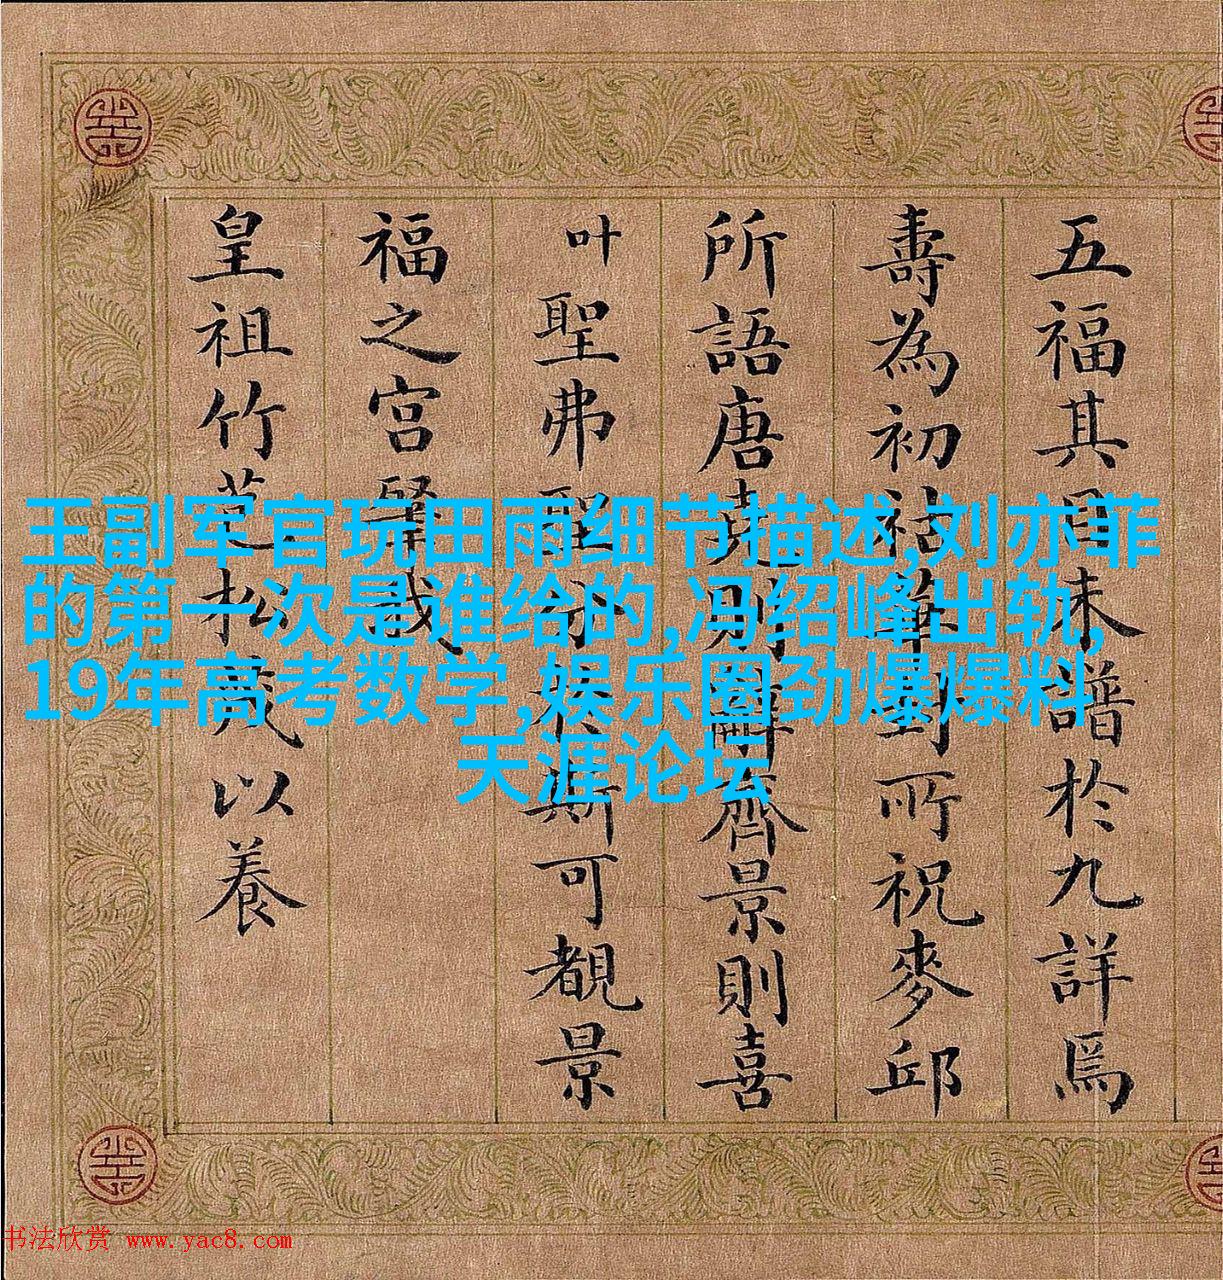 五福其目未譜於九詳焉
壽為初祜華封所祝麥邱
所語唐堯則辭齊景則喜
叶聖弗聖分於斯可覩景
福之宮肇我
皇祖竹苞松茂以養
王副军官玩田雨细节描述,刘亦菲
的第一次是谁给的,冯绍峰出轨,
19年高考数学,娱乐圈劲爆爆料
天涯论坛
书法欣赏 www.yac8.com